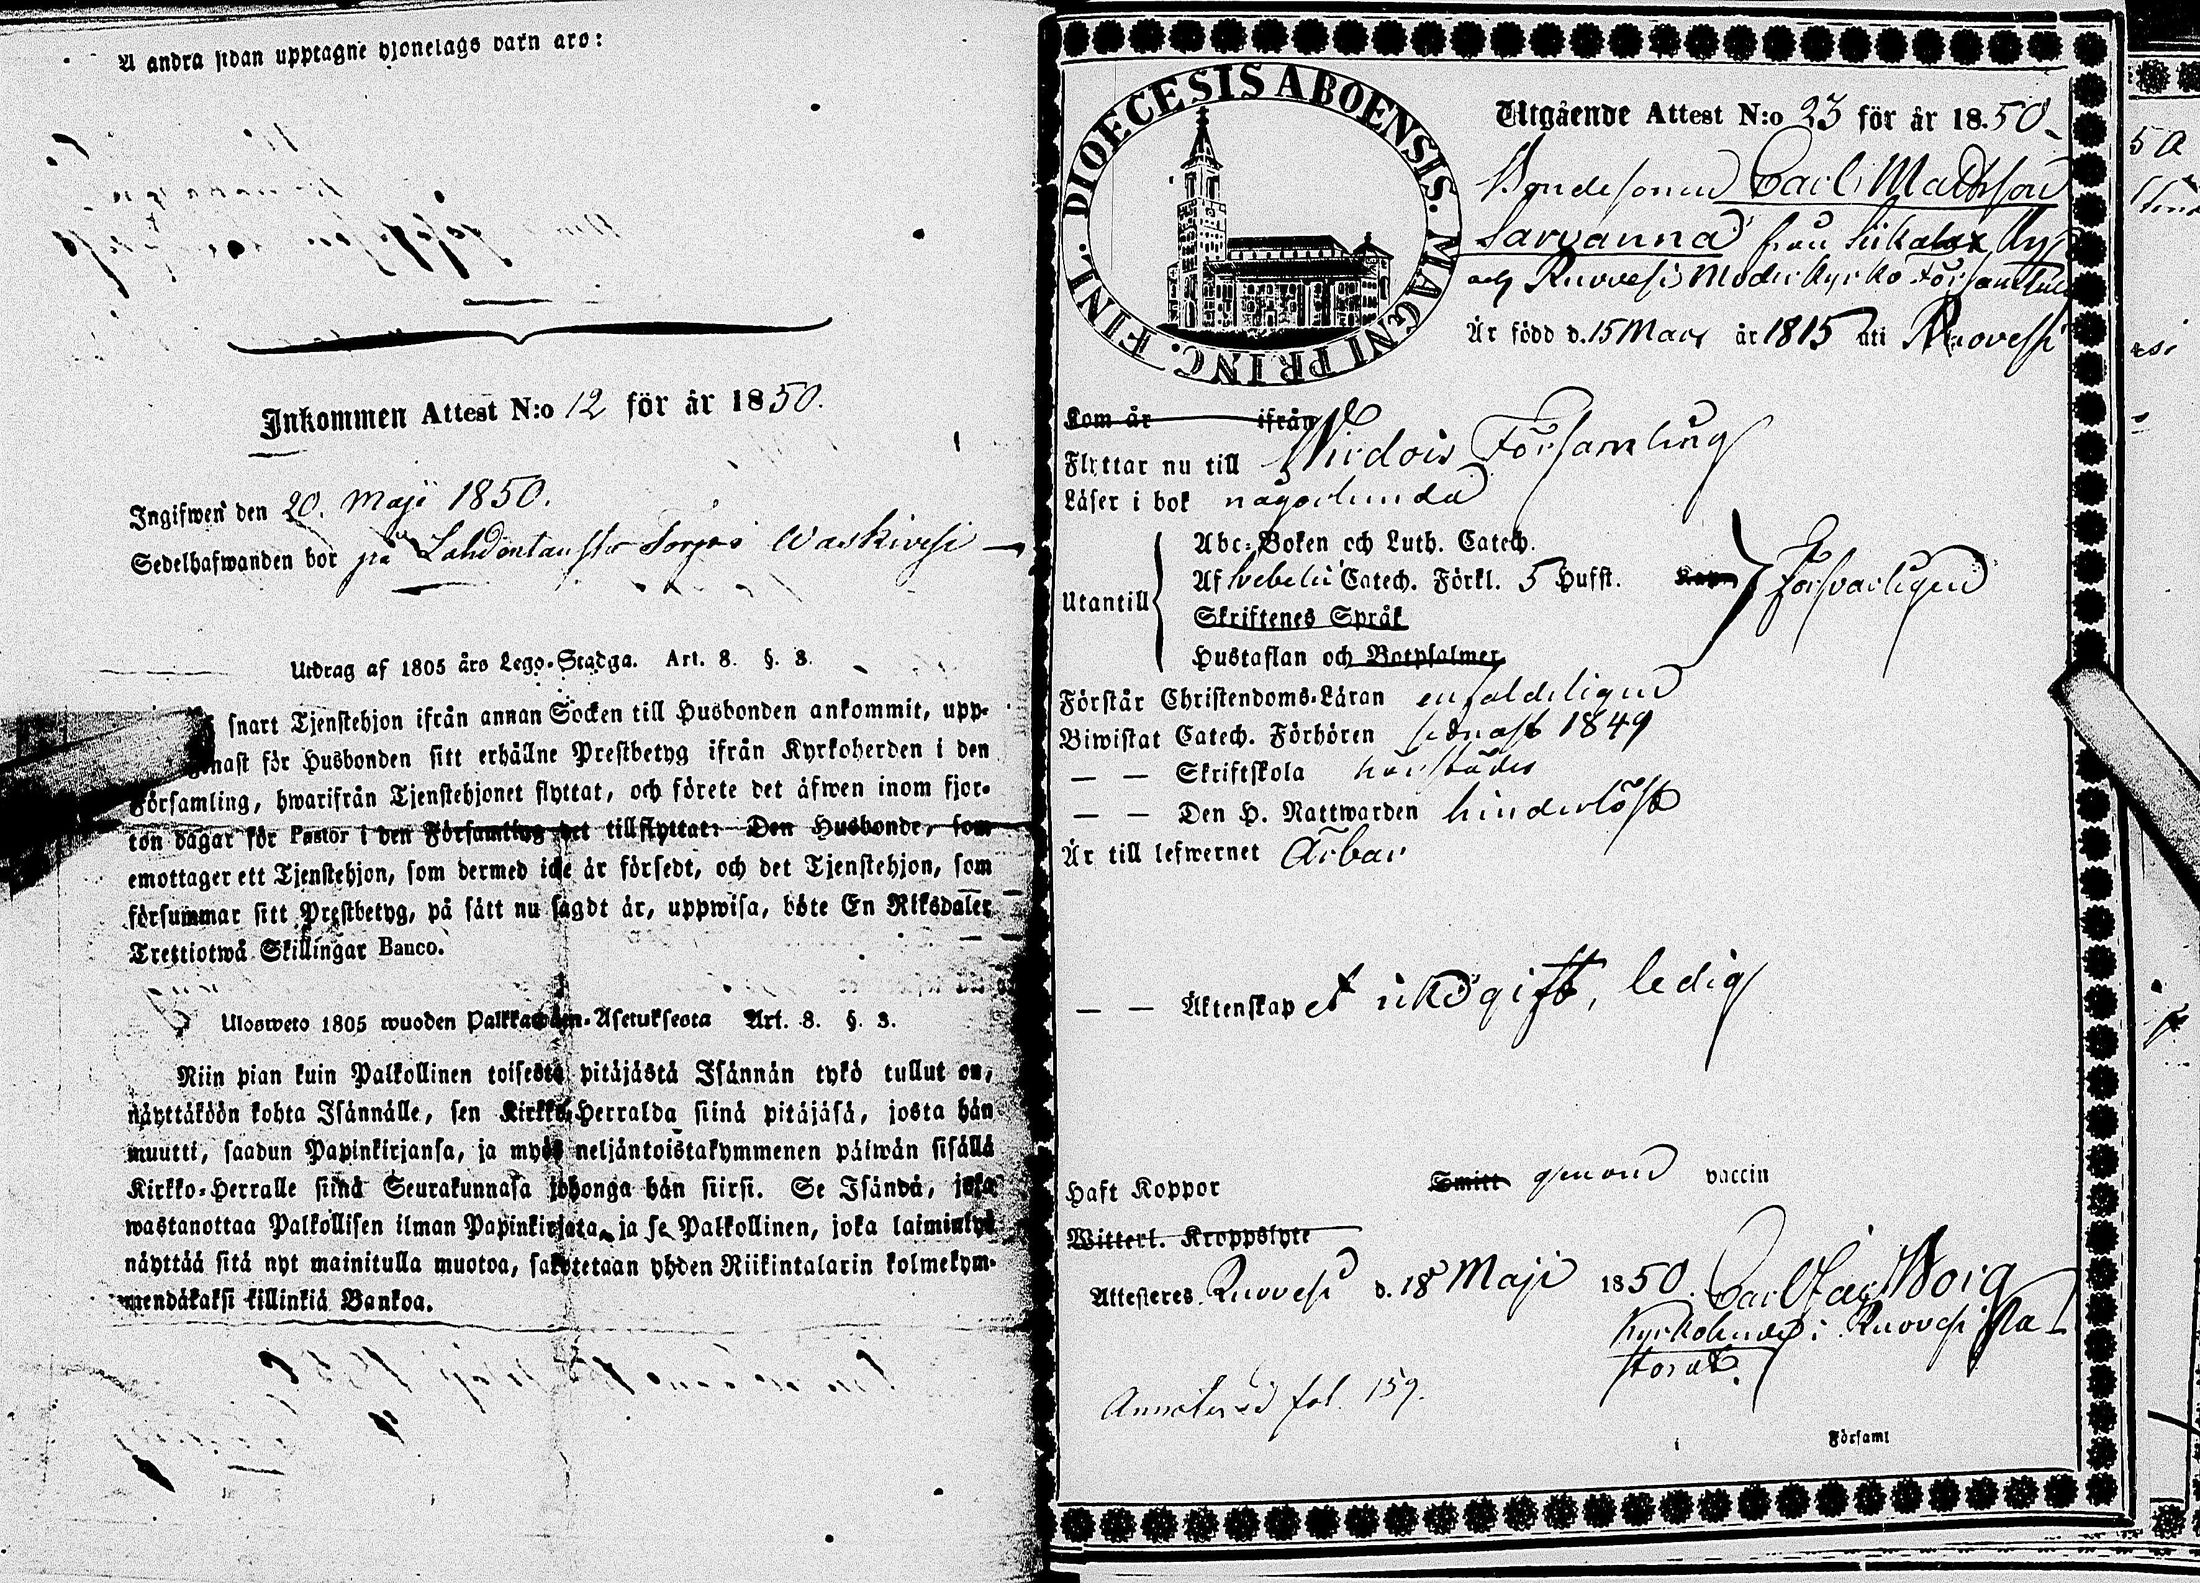 Å andra sidan upptagne hjonelags barn äro:
Inkommen Attest N:o 12 för år 1850.
Ingifwen den 20. Maji 1850.
Sedelhafwanden bor på Torp i Waskivesi
Utdrag af 1805 års Lego-Stadga. Art. 8. §. 3.
snart Tjenstehjon ifrån annan Socken till Husbonden ankommit, upp-
genast för Husbonden sitt erhållne Prestbetyg ifrån Kyrkoherden i den
Församling, hwarifrån Tjenstehjonet flyttat, och förete det äfwen inom fjor-
ton dagar för Pastor i den Församling det tillflyttat: Den Husbonde, som
emottager ett Tjenstehjon, som dermed icke är försedt, och det Tjenstehjon, som
försummar sitt Prestbetyg, på sätt nu sagdt är, uppwisa, böte En Riksdaler
Trettiotwå Skillingar Banco.
Ulosweto 1805 wuoden Palkkawäen-Asetuksesta Art. 8. §. 3.
Niin pian kuin Palkollinen toisesta pitäjästä Isännän tykö tullut on,
näyttäköön kohta Isännälle, sen Kirkko-Herralda siinä pitäjäsä, josta hän
muutti, saadun Papinkirjansa, ja myös neljäntoistakymmenen päiwän sisällä
Kirkko-Herralle siinä Seurakunnasa johonga hän siirsi. Se Isändä, joka
wastanottaa Palkollisen ilman Papinkirjata, ja se Palkollinen, joka laiminlyö
näyttää sitä nyt mainitulla muotoa, sakotetaan yhden Riikintalarin kolmekym-
mendäkaksi killinkiä Bankoa.
DIOECESIS ABOENSIS. MAGNI PRINC. FINL.
Utgående Attest N:o 23 för år 18.50.
Bondesonen Carl Mattsson
Sarvanna från
och Ruovesi Moderkyrko Församling
Är född d. 15 Mars år 1815 uti Ruovesi
Kom år ifrån
Flyttar nu till Virdois Församling
Läser i bok någorlunda
Abc-Boken och Luth. Catech.
Utantill Af Svebelii Catech. Förkl. 5 Hufst. Kap. Försvarligen
Skriftenes Språk
Hustaflan och Botpsalmer
Förstår Christendoms-Läran enfaldeligen
Biwistat Catech. Förhören sednast 1849
— — Skriftskola härstädes
— — Den H. Nattwarden hinderlöst
Är till lefwernet Ärbar
— — Äktenskap et rikdgift, ledig
Haft Koppor Smitt genom vaccin
Witterl. Kroppslyte
Attesteras Ruovesi d. 18 Maji 1850. Carl
Kyrkoherde i Ruovesi Pa-
storat.
Annoterad fol. 159.
Församl